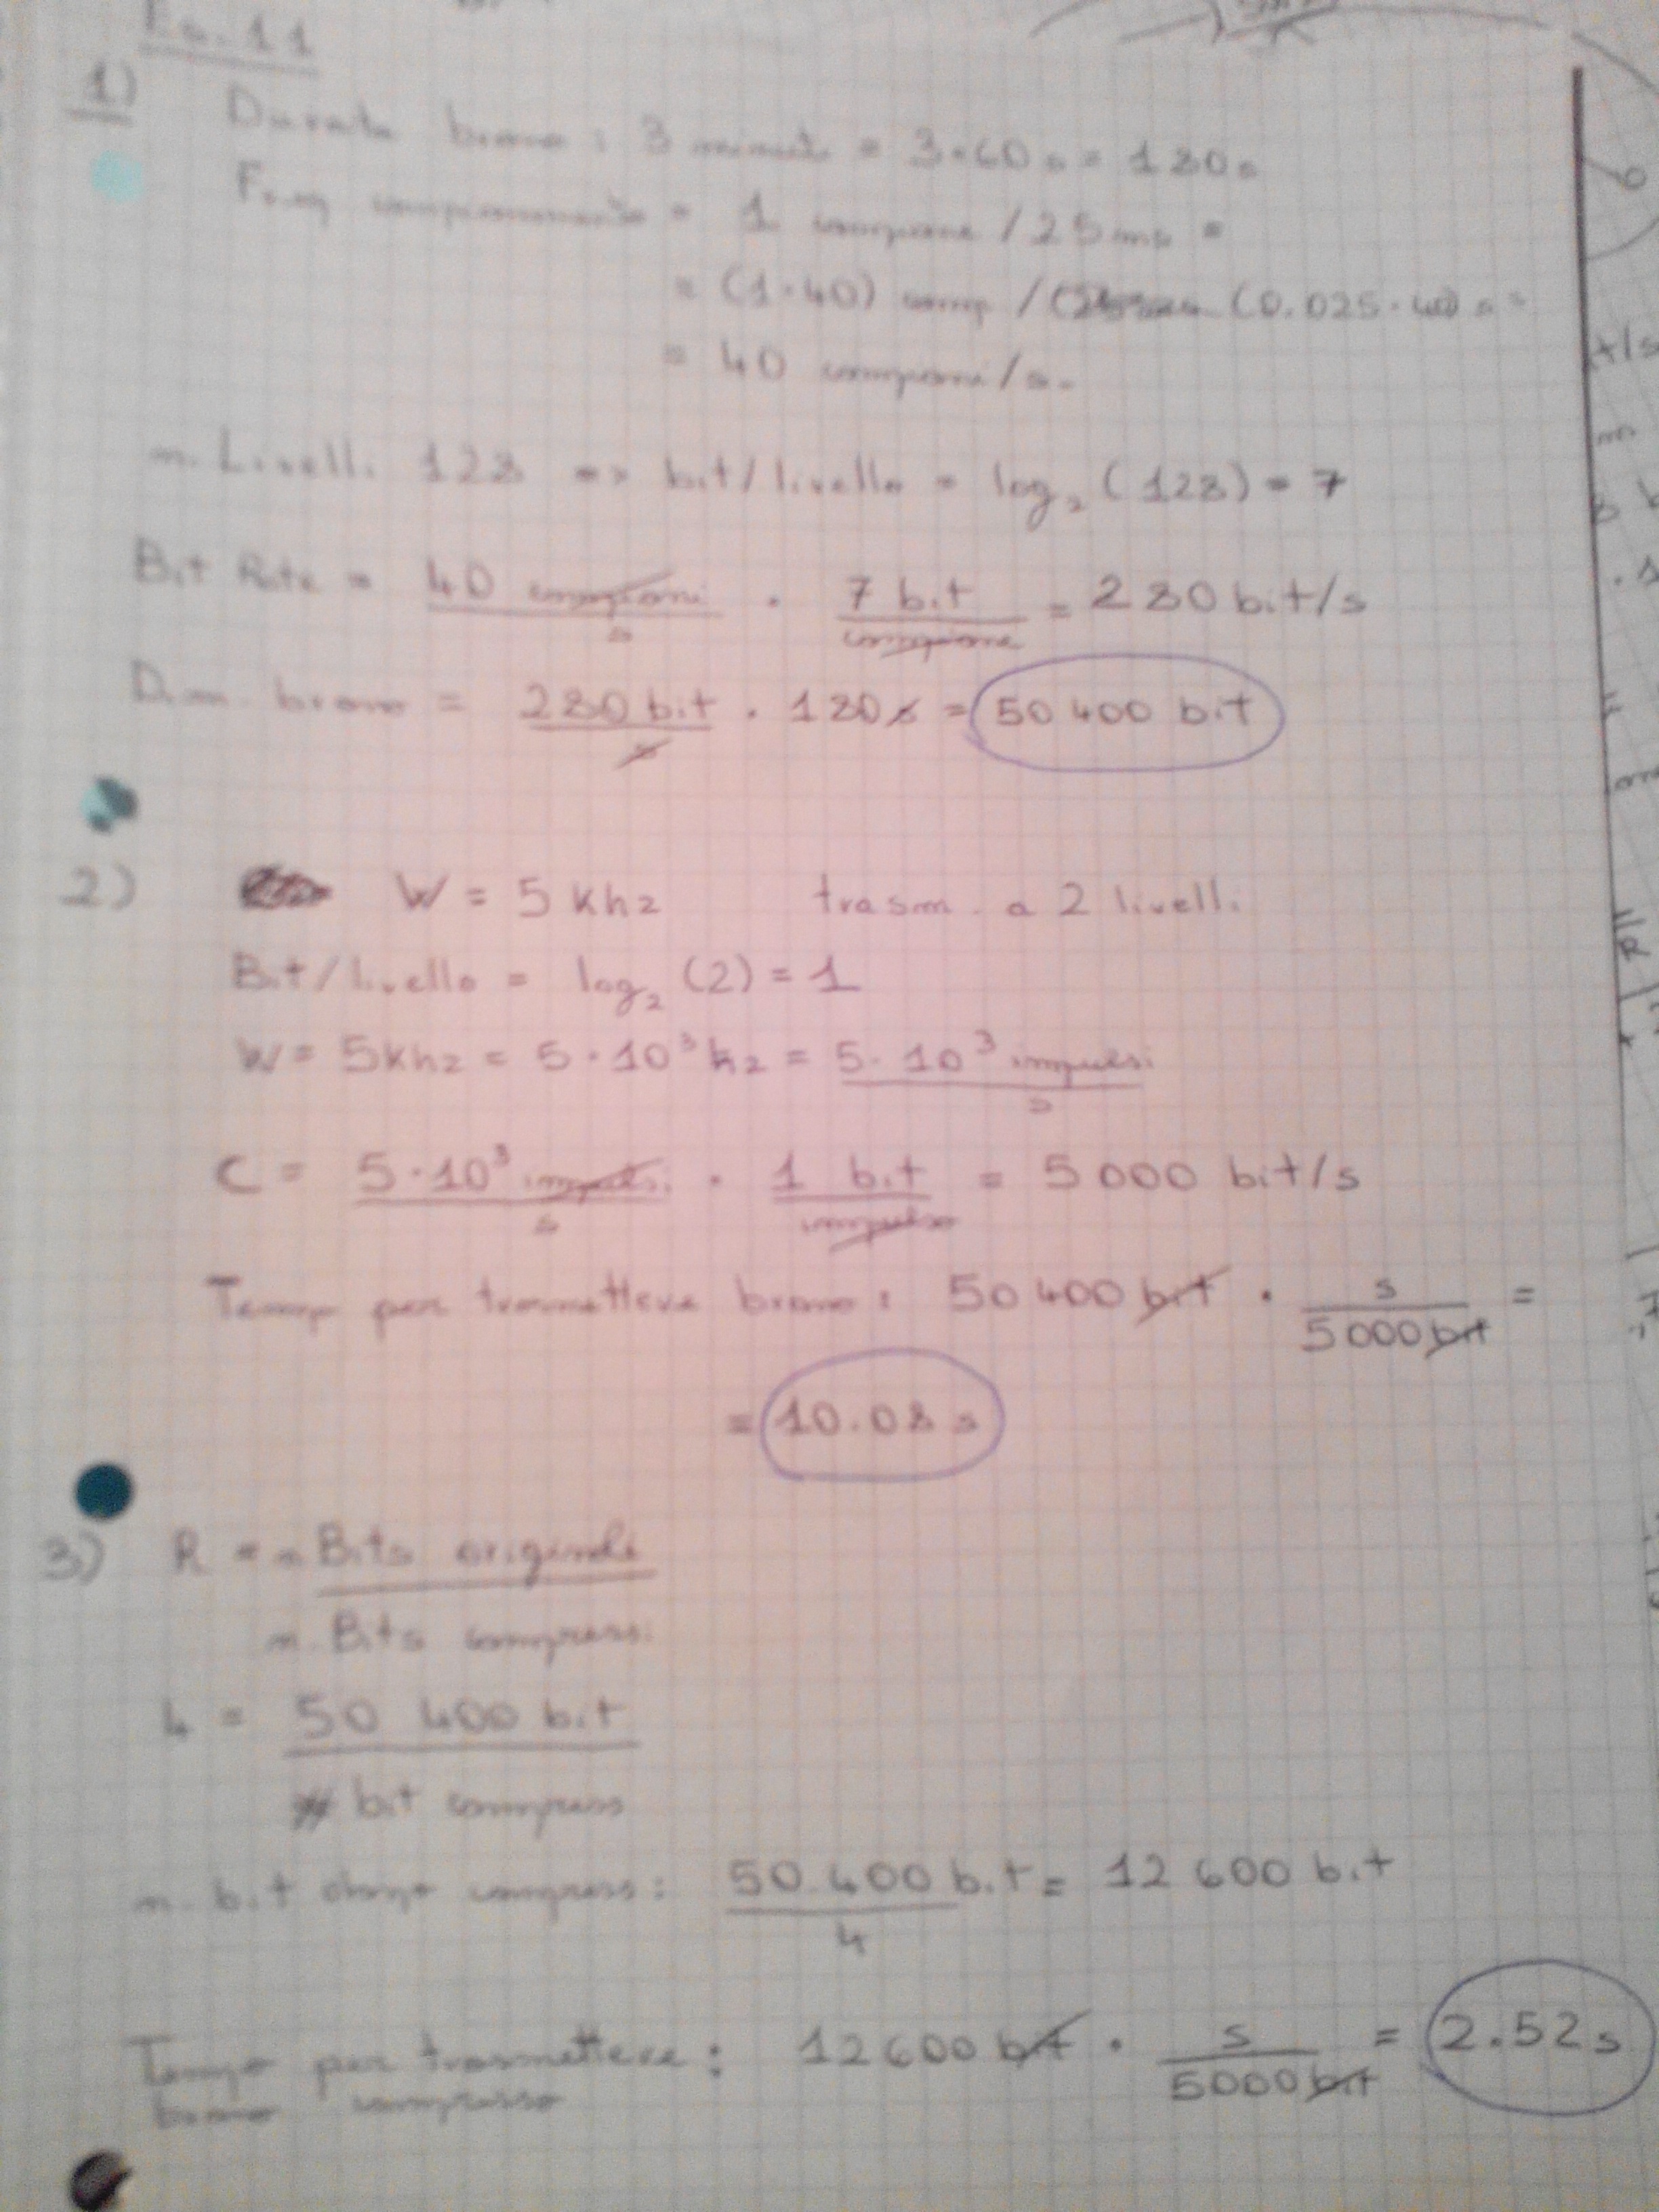 Es. 11
1) Durata brano : 3 minuti = 3·60 s = 180 s
Freq campionamento = 1 campione / 25 ms =
= (1·40) camp / (0.025·40) s =
= 40 campioni / s.
n. Livelli 128 => bit/livello = log₂ (128) = 7
Bit Rate = 40 campioni / s · 7 bit / campione = 280 bit/s
Dim. brano = 280 bit / s · 180 s = 50 400 bit
2) W = 5 khz trasm. a 2 livelli
Bit/livello = log₂ (2) = 1
W = 5 khz = 5·10³ hz = 5·10³ impulsi / s
C = 5·10³ impulsi / s · 1 bit / impulso = 5000 bit/s
Tempo per trasmettere brano : 50 400 bit · s / 5000 bit =
= 10.08 s
3) R = n Bits originali
n. Bits compressi
4 = 50 400 bit
bit compress
n. bit dopo compress : 50 400 bit / 4 = 12 600 bit
Tempo per trasmettere : 12600 bit · s / 5000 bit = 2.52 s
brano compresso